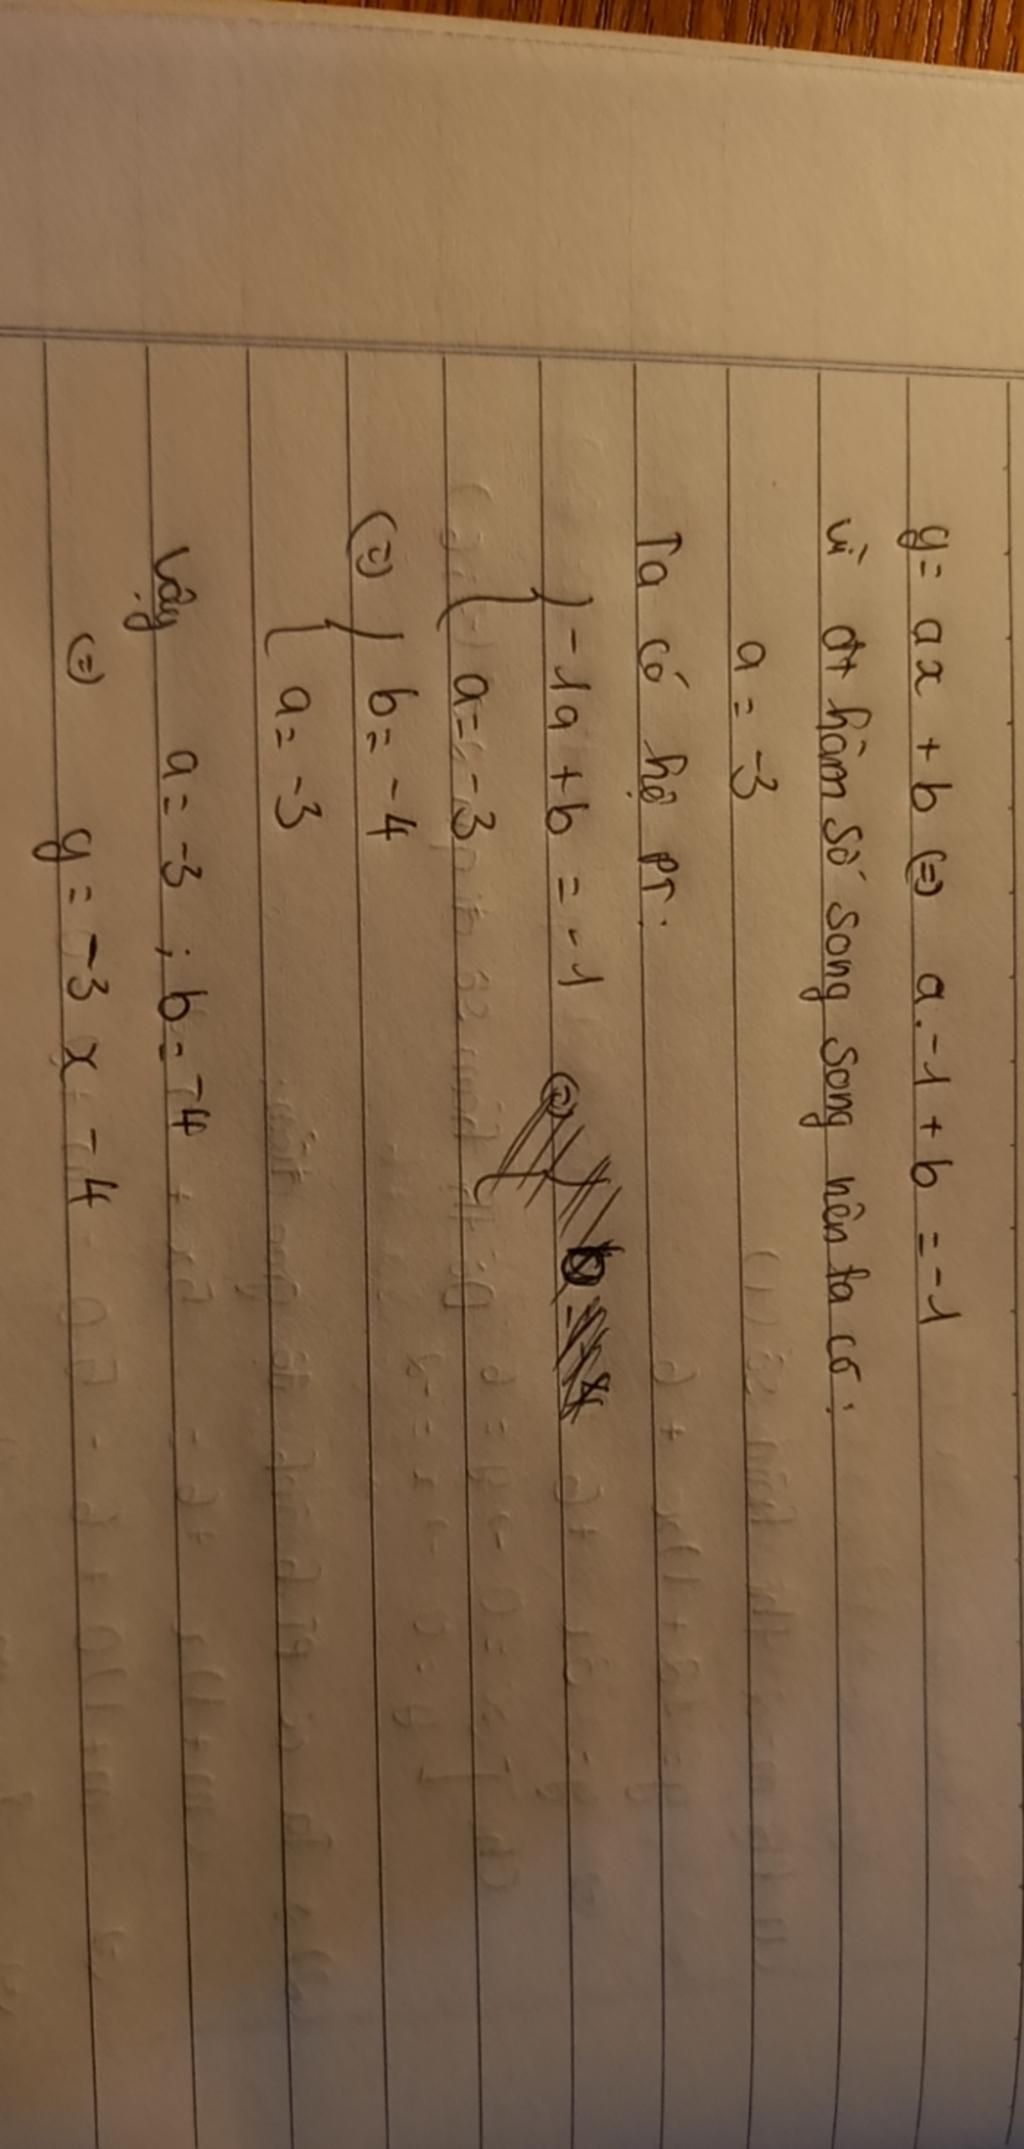 y = ax + b (=) a.-1 + b = -1
Vì đt hàm số song song nên ta có:
a = -3
Ta có hệ PT:
{ -1a + b = -1
a = -3
(=) { b = -4
a = -3
Vậy a = -3 ; b = -4
(=) y = -3x - 4